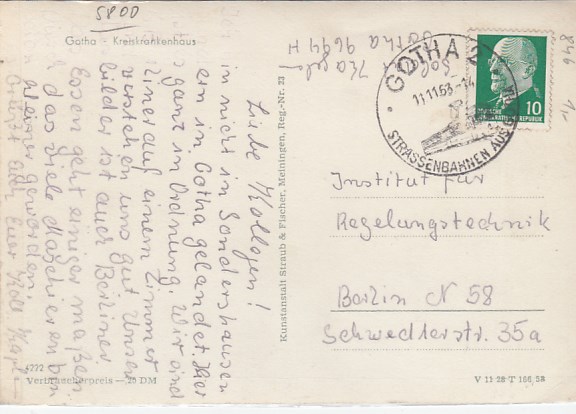 5800
Gotha - Kreiskrankenhaus
Liebe Kollegen!
in nicht in Sondershausen
ein in Gotha gelandet. Hier
ganz in Ordnung. Wir sind
Zimer auf einem Zimmer
verstehen uns gut. Unser
bilder ist auch Berliner
Essen geht einiger maßen
das viele Maschieren bin
ich geworden
Grüßt Euch Euer
4222
Verbraucherpreis — 25 DM
Kunstanstalt Straub & Fischer, Meiningen, Reg.-Nr. 23
Gotha 9694 H
GOTHA 2
11.11.63-14
STRASSENBAHNEN AUS GOTHA
DEUTSCHE
DEMOKRATISCHE REPUBLIK
10
Institut für
Regelungstechnik
Berlin N 58
Schwedterstr. 35a
V 11 28 T 166 58